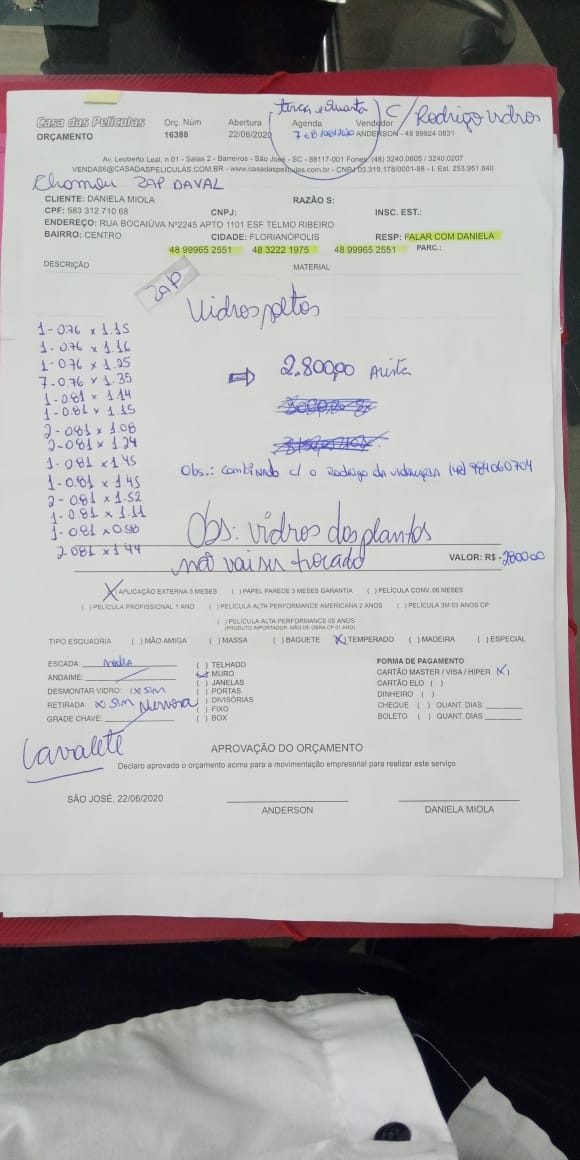 terça e quarta) C/ Rodrigo vidros
Casa das Películas Orç. Núm Abertura Agenda Vendedor
ORÇAMENTO 16388 22/06/2020 ANDERSON - 48 99924 0831
Av. Leoberto Leal, n 01 - Salas 2 - Barreiros - São José - SC - 88117-001 Fones (48) 3240.0605 / 3240.0207
VENDAS6@CASADASPELICULAS.COM.BR - www.casadaspeliculas.com.br - CNPJ 03.319.178/0001-98 - I. Est. 253.951.640
Chamou ZAP DAVAL
CLIENTE: DANIELA MIOLA RAZÃO S:
CPF: 583 312 710 68 CNPJ: INSC. EST.:
ENDEREÇO: RUA BOCAIÚVA Nº2245 APTO 1101 ESF TELMO RIBEIRO
BAIRRO: CENTRO CIDADE: FLORIANÓPOLIS RESP: FALAR COM DANIELA
48 99965 2551 48 3222 1975 48 99965 2551 PARC.:
DESCRIÇÃO MATERIAL
ZAP
Vidros soltos
1-076 x 1.15
1-076 x 1.16
1-076 x 1.25
7-076 x 1.35
1-081 x 1.14
1-081 x 1.15
2-081 x 1.08
2-081 x 1.24
1-081 x 1.45
1-0.81 x 1.45
2-0.81 x 1.52
1-0.81 x 1.11
1-0.81 x 0.98
2-081 x 1.44
⇒ 2.800,00 Avista
Obs.: Combinado c/ o Rodrigo da vidraçaria (48) 984060704
Obs: vidros dos plantas
não vai ser trocado VALOR: R$ - 280000
X) APLICAÇÃO EXTERNA 3 MESES ( ) PAPEL PAREDE 3 MESES GARANTIA ( ) PELÍCULA CONV. 06 MESES
( ) PELÍCULA PROFISSIONAL 1 ANO ( ) PELÍCULA ALTA PERFORMANCE AMERICANA 2 ANOS ( ) PELÍCULA 3M 03 ANOS CP
( ) PELÍCULA ALTA PERFORMANCE 05 ANOS
(PRODUTO IMPORTADOR, MÃO DE OBRA CP 01 ANO)
TIPO ESQUADRIA ( ) MÃO AMIGA ( ) MASSA ( ) BAGUETE (X) TEMPERADO ( ) MADEIRA ( ) ESPECIAL
ESCADA: media ( ) TELHADO FORMA DE PAGAMENTO
ANDAIME: MURO CARTÃO MASTER / VISA / HIPER X)
DESMONTAR VIDRO: (X SIM ( ) JANELAS CARTÃO ELO ( )
( ) PORTAS DINHEIRO ( )
RETIRADA: X SIM ( ) DIVISÓRIAS CHEQUE ( ) QUANT. DIAS:
( ) FIXO
GRADE CHAVE: ( ) BOX BOLETO ( ) QUANT. DIAS
Cavalete
APROVAÇÃO DO ORÇAMENTO
Declaro aprovado o orçamento acima para a movimentação empresarial para realizar este serviço
SÃO JOSÉ, 22/06/2020
ANDERSON DANIELA MIOLA